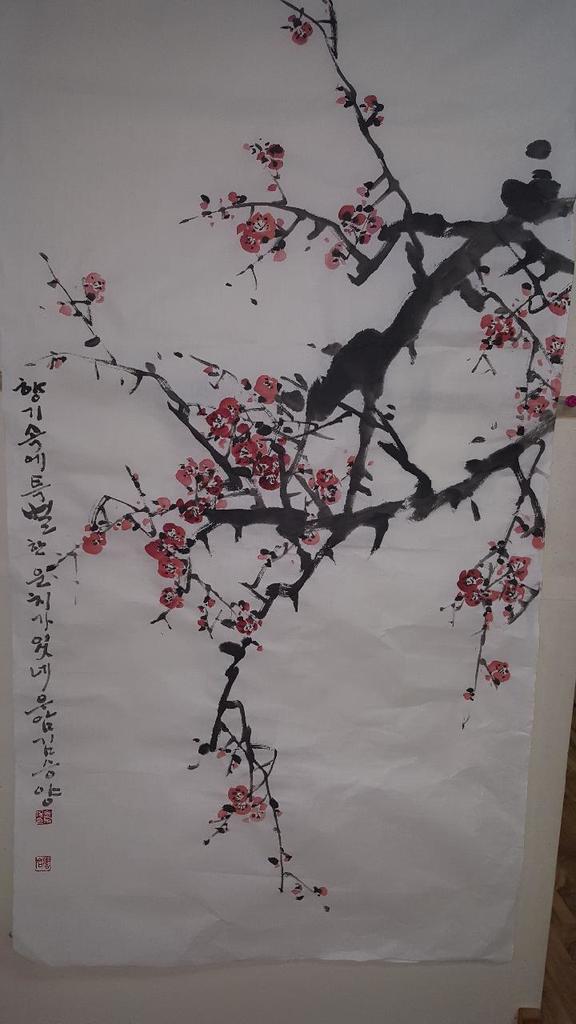 향기속에특별한운치가있네 김승양